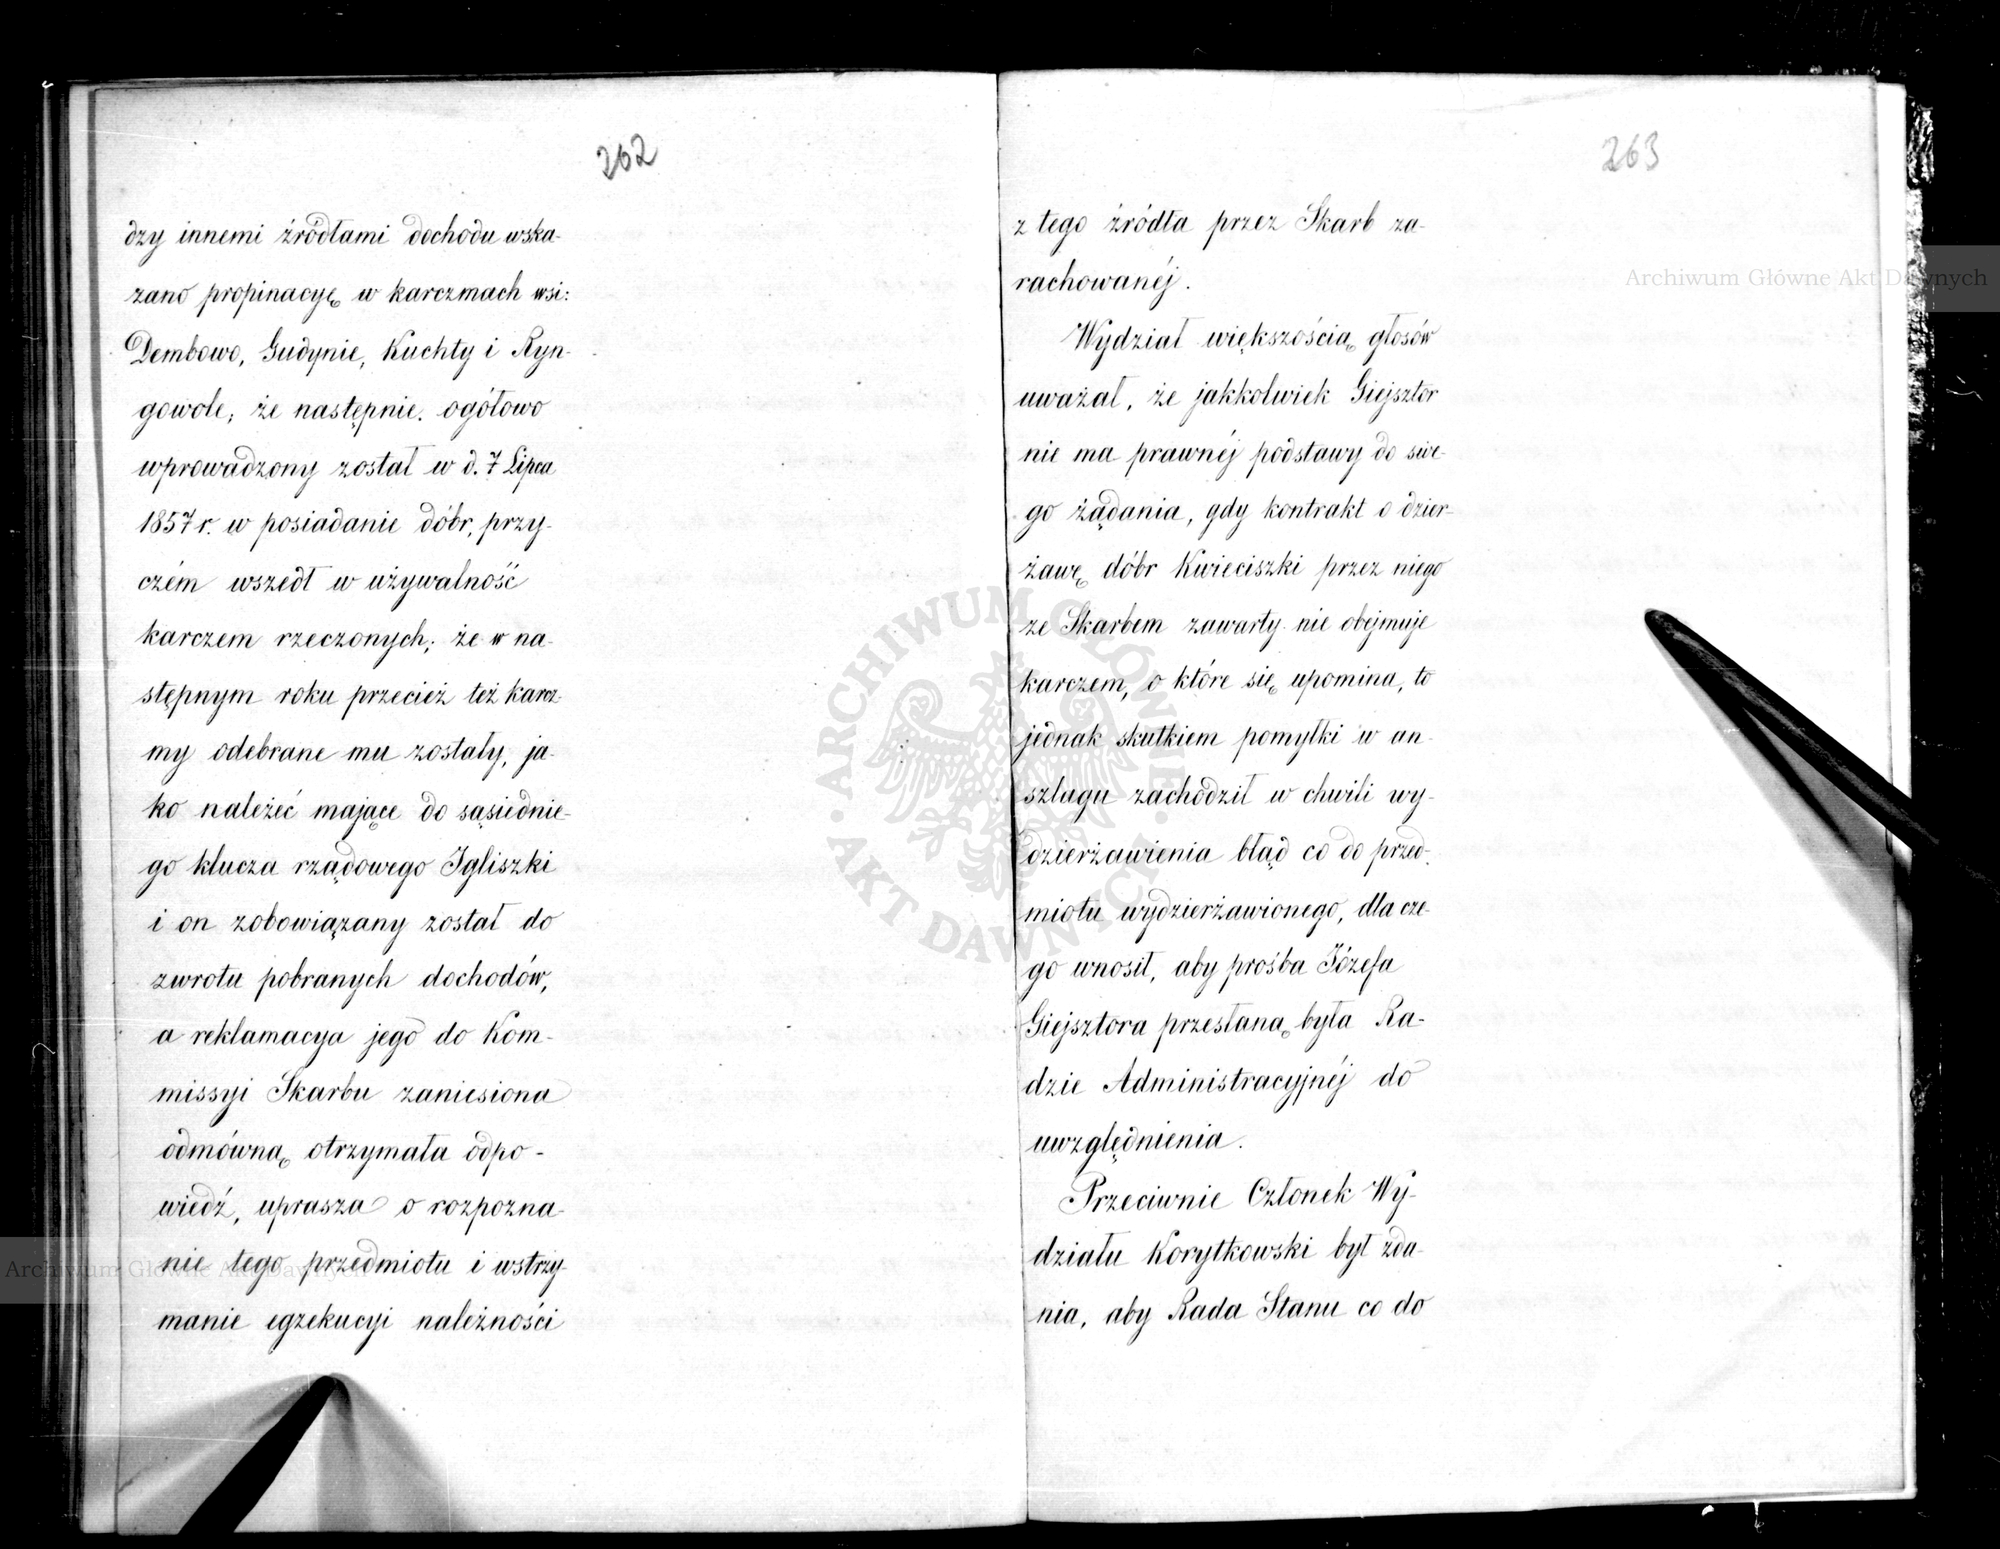 262
dzy innemi źródłami dochodu wska-
zano propinacyę w karczmach wsi:
Dembowo, Gudynie, Kuchty i Ryn-
gowole; że następnie ogółowo
wprowadzony został w d. 7 Lipca
1857 r. w posiadanie dóbr, przy-
czém wszedł w używalność
karczem rzeczonych; że w na-
stępnym roku przecież też karcz-
my odebrane mu zostały, ja-
ko należéć mające do sąsiednie-
go klucza rządowego Igliszki
i on zobowiązany został do
zwrotu pobranych dochodów,
a reklamacya jego do Kom-
missyi Skarbu zaniesiona
odmówną otrzymała odpo-
wiedź, uprasza o rozpozna-
nie tego przedmiotu i wstrzy-
manie egzekucyi należności
263
z tego źródła przez Skarb za-
rachowanéj.
Wydział większością głosów
uważał, że jakkolwiek Giejsztor
nie ma prawnéj podstawy do swe-
go żądania, gdy kontrakt o dzier-
żawę dóbr Kwieciszki przez niego
ze Skarbem zawarty nie obejmuje
karczem, o które się upomina, to
jednak skutkiem pomyłki w an-
szlagu zachodził w chwili wy-
dzierżawienia błąd co do przed-
miotu wydzierżawionego, dla cze-
go wnosił, aby prośba Józefa
Giejsztora przesłaną była Ra-
dzie Administracyjnéj do
uwzględnienia.
Przeciwnie Członek Wy-
działu Korytkowski był zda-
nia, aby Rada Stanu co do
Archiwum Główne Akt Dawnych
Archiwum Główne Akt Dawnych
ARCHIWUM GŁÓWNE AKT DAWNYCH